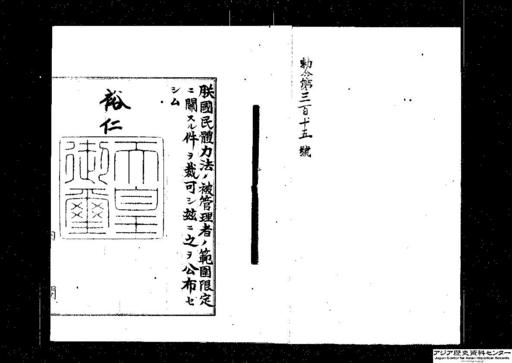 勅令第三百十五號
朕國民體力法ノ被管理者ノ範圍限定
ニ關スル件ヲ裁可シ玆ニ之ヲ公布セ
シム
裕仁
天皇
御璽
内閣
アジア歴史資料センター
Japan Center for Asian Historical Records